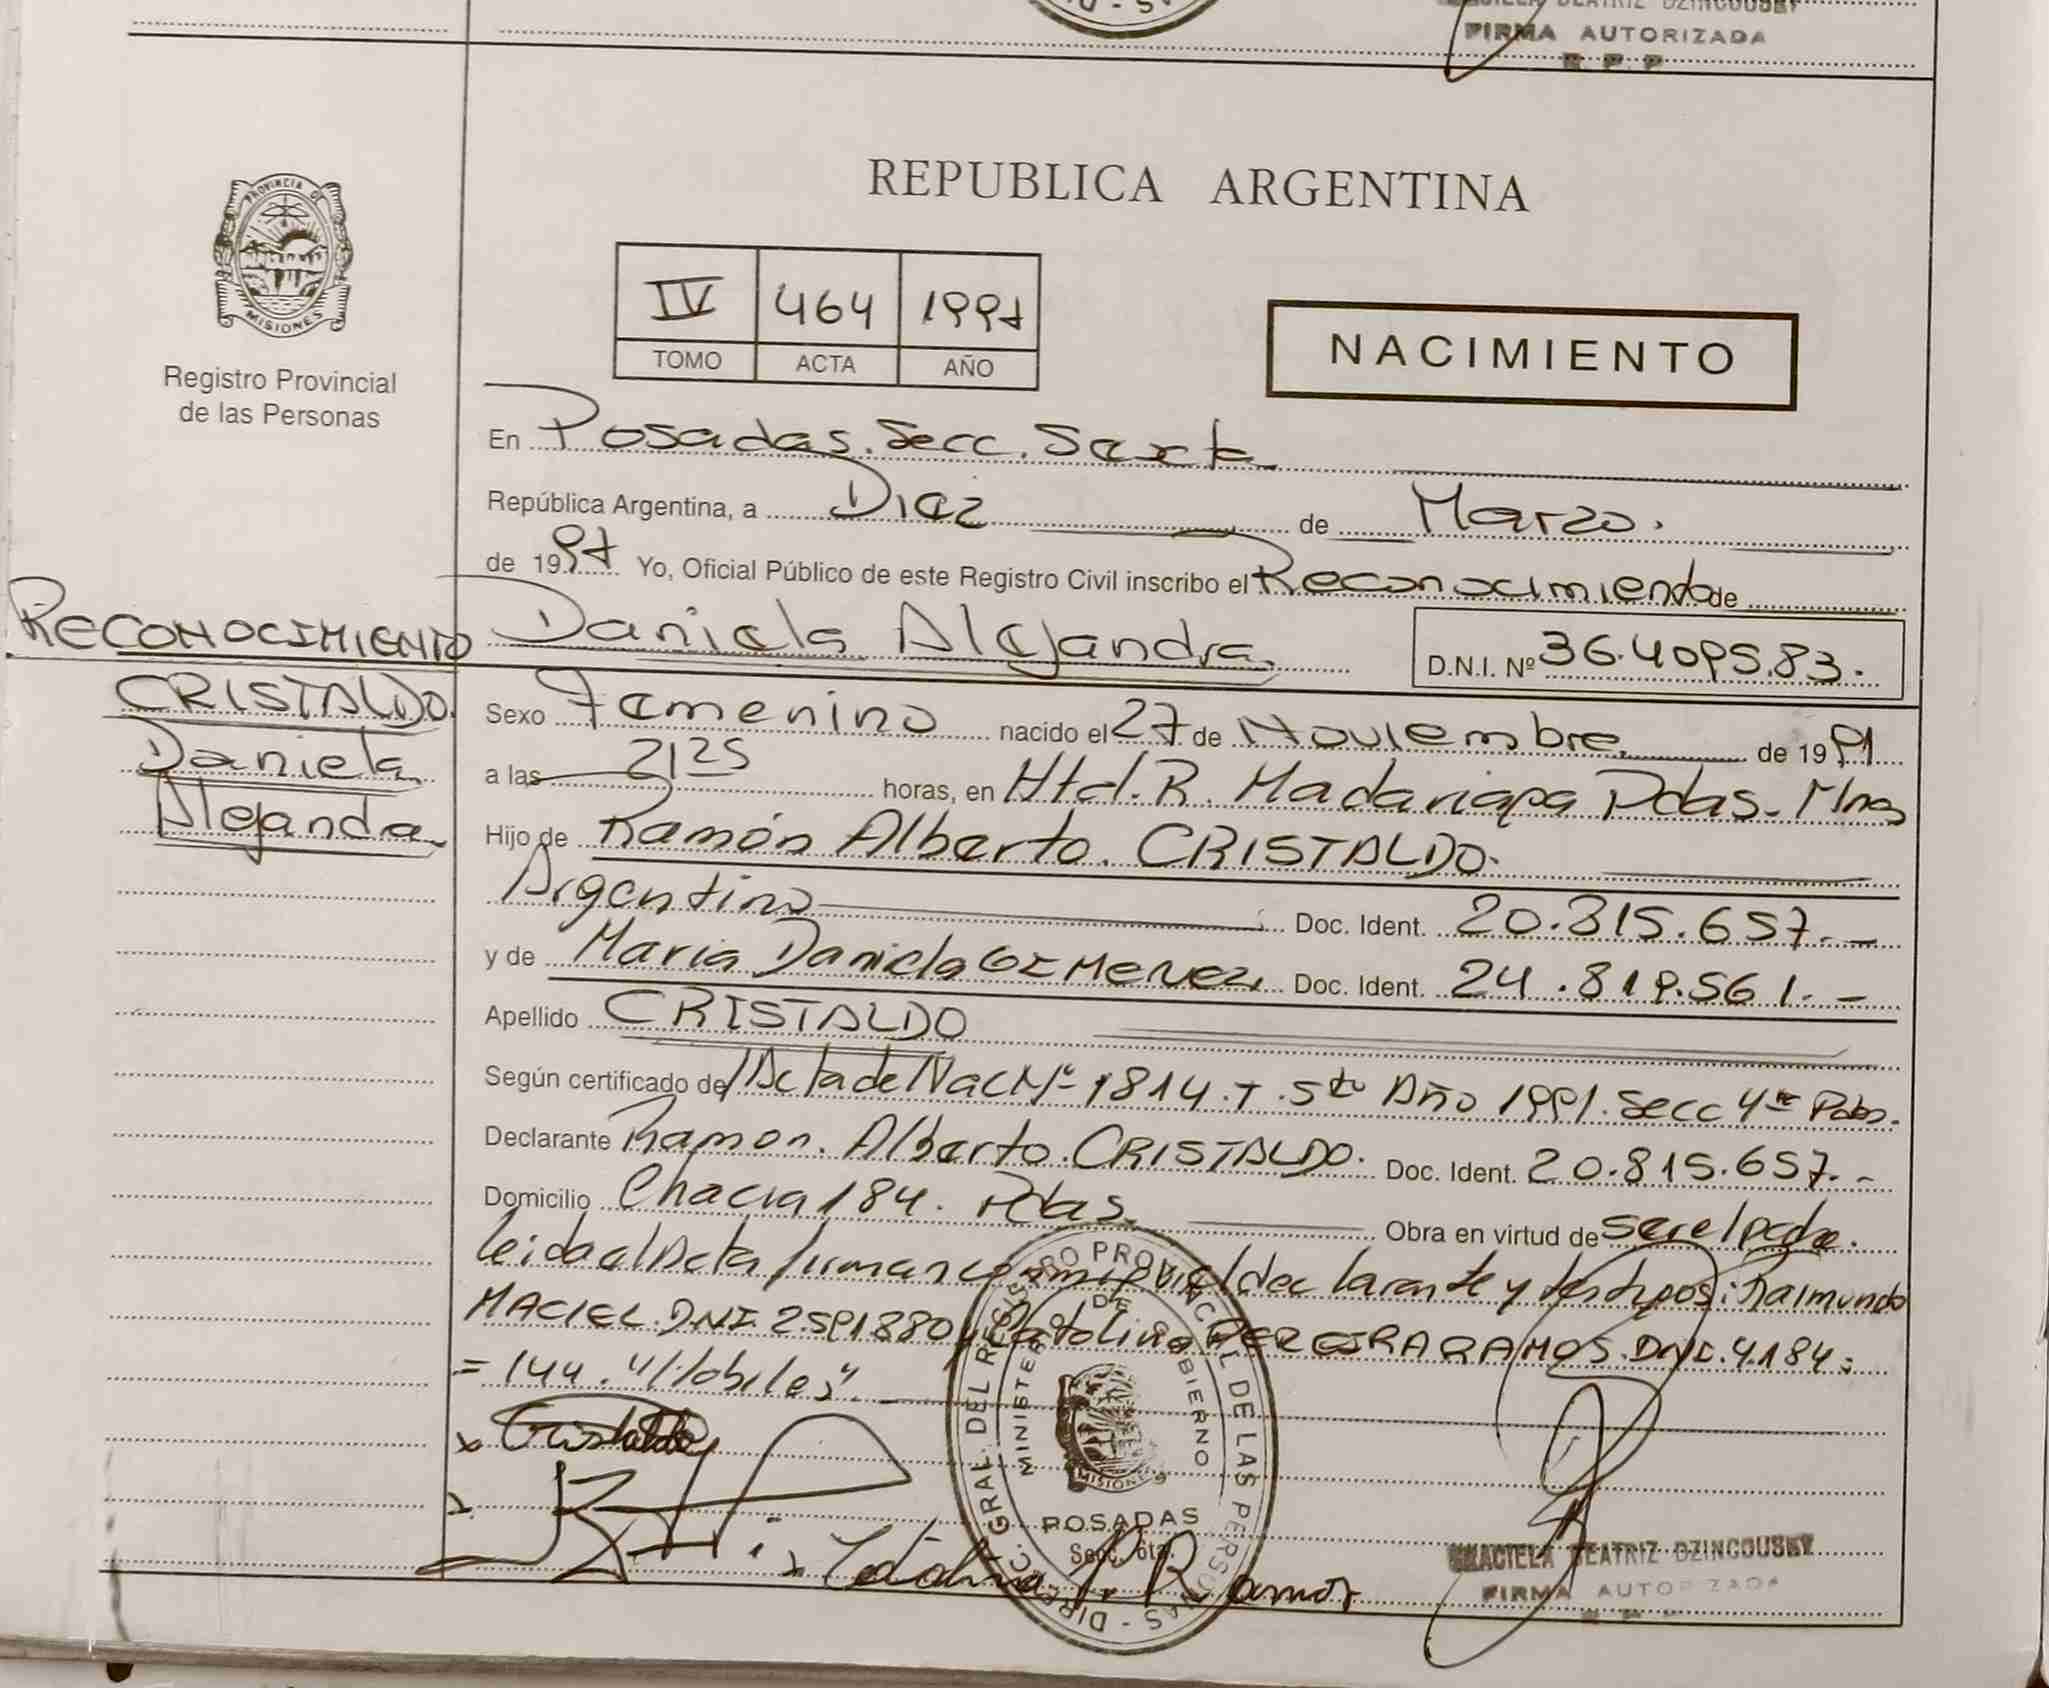 GRACIELA BEATRIZ DZINCOUSKY
FIRMA AUTORIZADA
R. P. P
PROVINCIA DE
MISIONES
Registro Provincial
de las Personas
REPUBLICA ARGENTINA
IV 464 1997
TOMO ACTA AÑO
NACIMIENTO
En Posadas. Secc. Sexta
República Argentina, a Diez de Marzo.
de 1997 Yo, Oficial Público de este Registro Civil inscribo el Reconocimiento de
RECONOCIMIENTO
CRISTALDO.
Daniela
Alejandra
Daniela Alejandra D.N.I. Nº 36.4095.83.
Sexo Femenino nacido el 27 de Noviembre de 1991
a las 2125 horas, en Htal. R. Madariaga Pdas. Mnes
Hijo de Ramón Alberto. CRISTALDO.
Argentino Doc. Ident. 20.815.657.-
y de Maria Daniela GIMENEZ Doc. Ident. 24.819.561.-
Apellido CRISTALDO
Según certificado de Acta de Nac Nº 1814. T. 5to Año 1991. Secc 4ta Pdas.
Declarante Ramon. Alberto. CRISTALDO. Doc. Ident. 20.815.657.-
Domicilio Chacra 184. Pdas. Obra en virtud de ser el padre.
leida el Acta firman conmigo el declarante y testigos: Raimundo
MACIEL. DNI. 2591880 y Catalina PEREIRA RAMOS. DNI. 4.184.
=144. "Hábiles".
Cristaldo
Catalina P. Ramos
DIREC. GRAL. DEL REGISTRO PROVINCIAL DE LAS PERSONAS
MINISTERIO DE GOBIERNO
MISIONES
POSADAS
Secc. 6ta.
GRACIELA BEATRIZ DZINCOUSKY
FIRMA AUTORIZADA